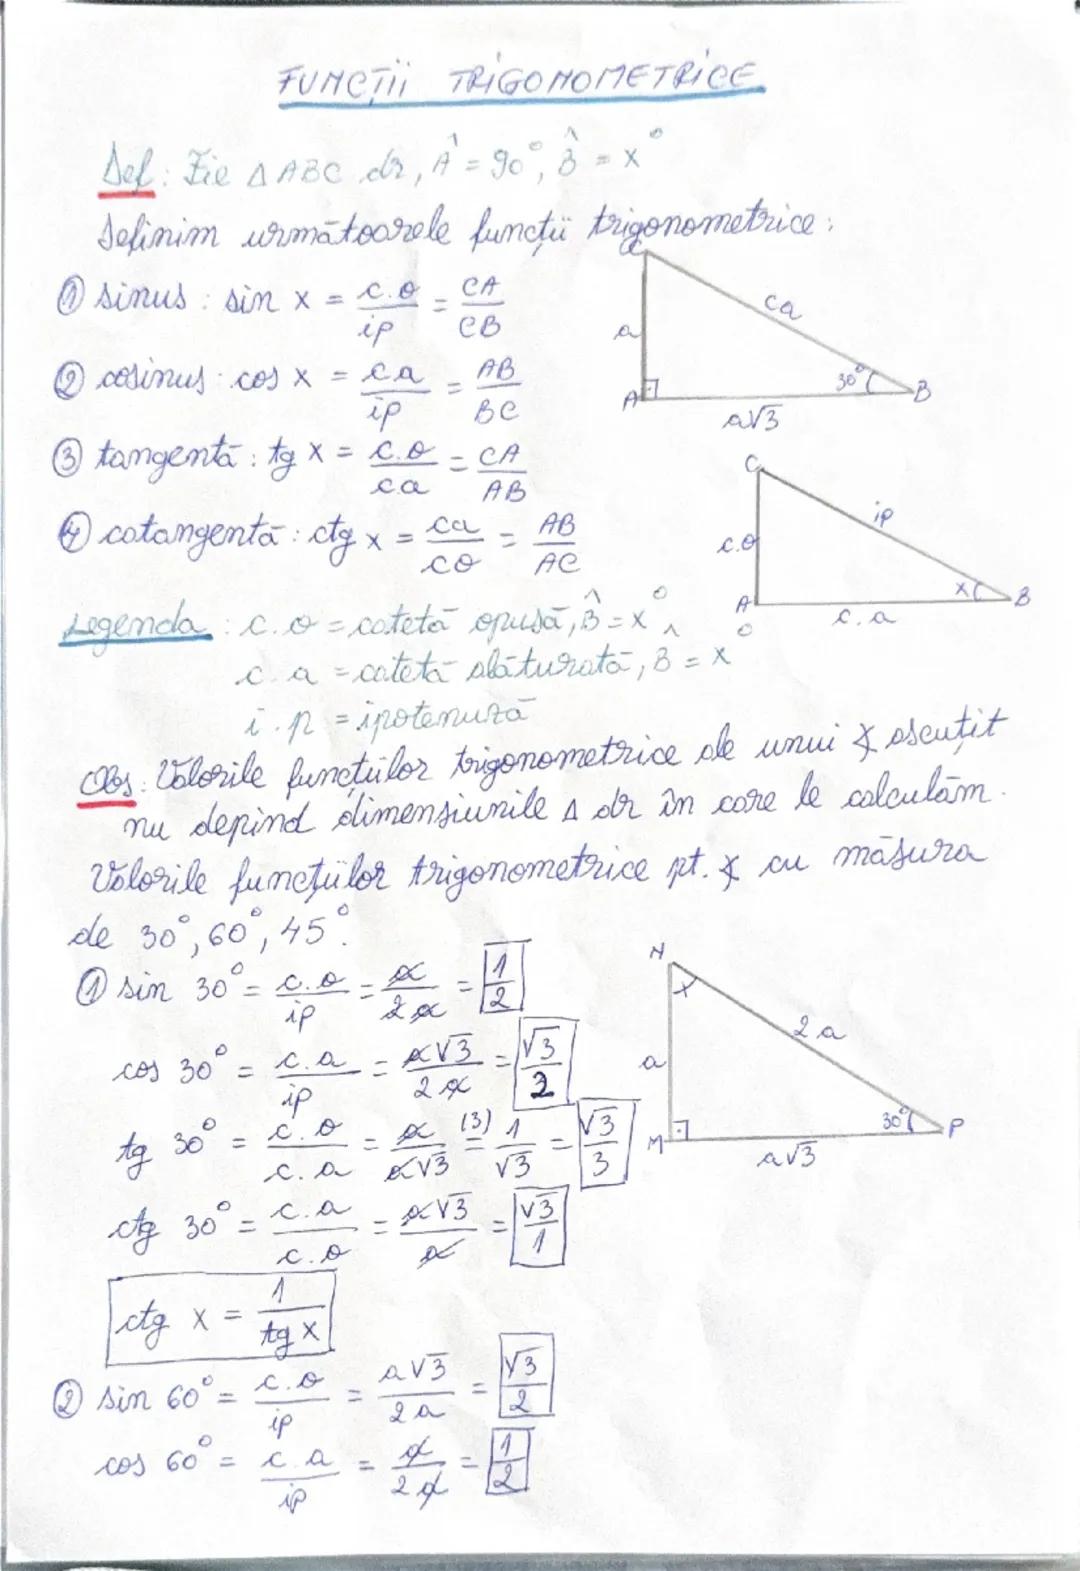 FUNCȚII TRIGONOMETRICE
Def: Fie Δ ABC dr, Â = 90°, B̂ = x°
Definim următoarele funcții trigonometrice:
① sinus: sin x = c.o/ip = CA/CB
② cosinus: cos x = c.a/ip = AB/BC
③ tangentă: tg x = c.o/c.a = CA/AB
④ cotangentă: ctg x = ca/co = AB/AC
C
ca
a
30°
A
B
a√3
C
ip
c.o
x
A
B
c.a
Legenda: c.o = catetă opusă, B̂ = x°
c.a = catetă alăturată, B̂ = x°
i.p = ipotenuză
Obs: Valorile funcțiilor trigonometrice ale unui ∢ ascuțit
nu depind dimensiunile Δ dr în care le calculăm.
Valorile funcțiilor trigonometrice pt. ∢ cu măsura
de 30°, 60°, 45°.
① sin 30° = c.o/ip = a/2a = 1/2
cos 30° = c.a/ip = a√3/2a = √3/2
tg 30° = c.o/c.a = a/a√3 (3)= 1/√3 = √3/3
ctg 30° = c.a/c.o = a√3/a = √3/1
ctg x = 1/tg x
N
x
2a
a
30°
M
P
a√3
② sin 60° = c.o/ip = a√3/2a = √3/2
cos 60° = c.a/ip = a/2a = 1/2